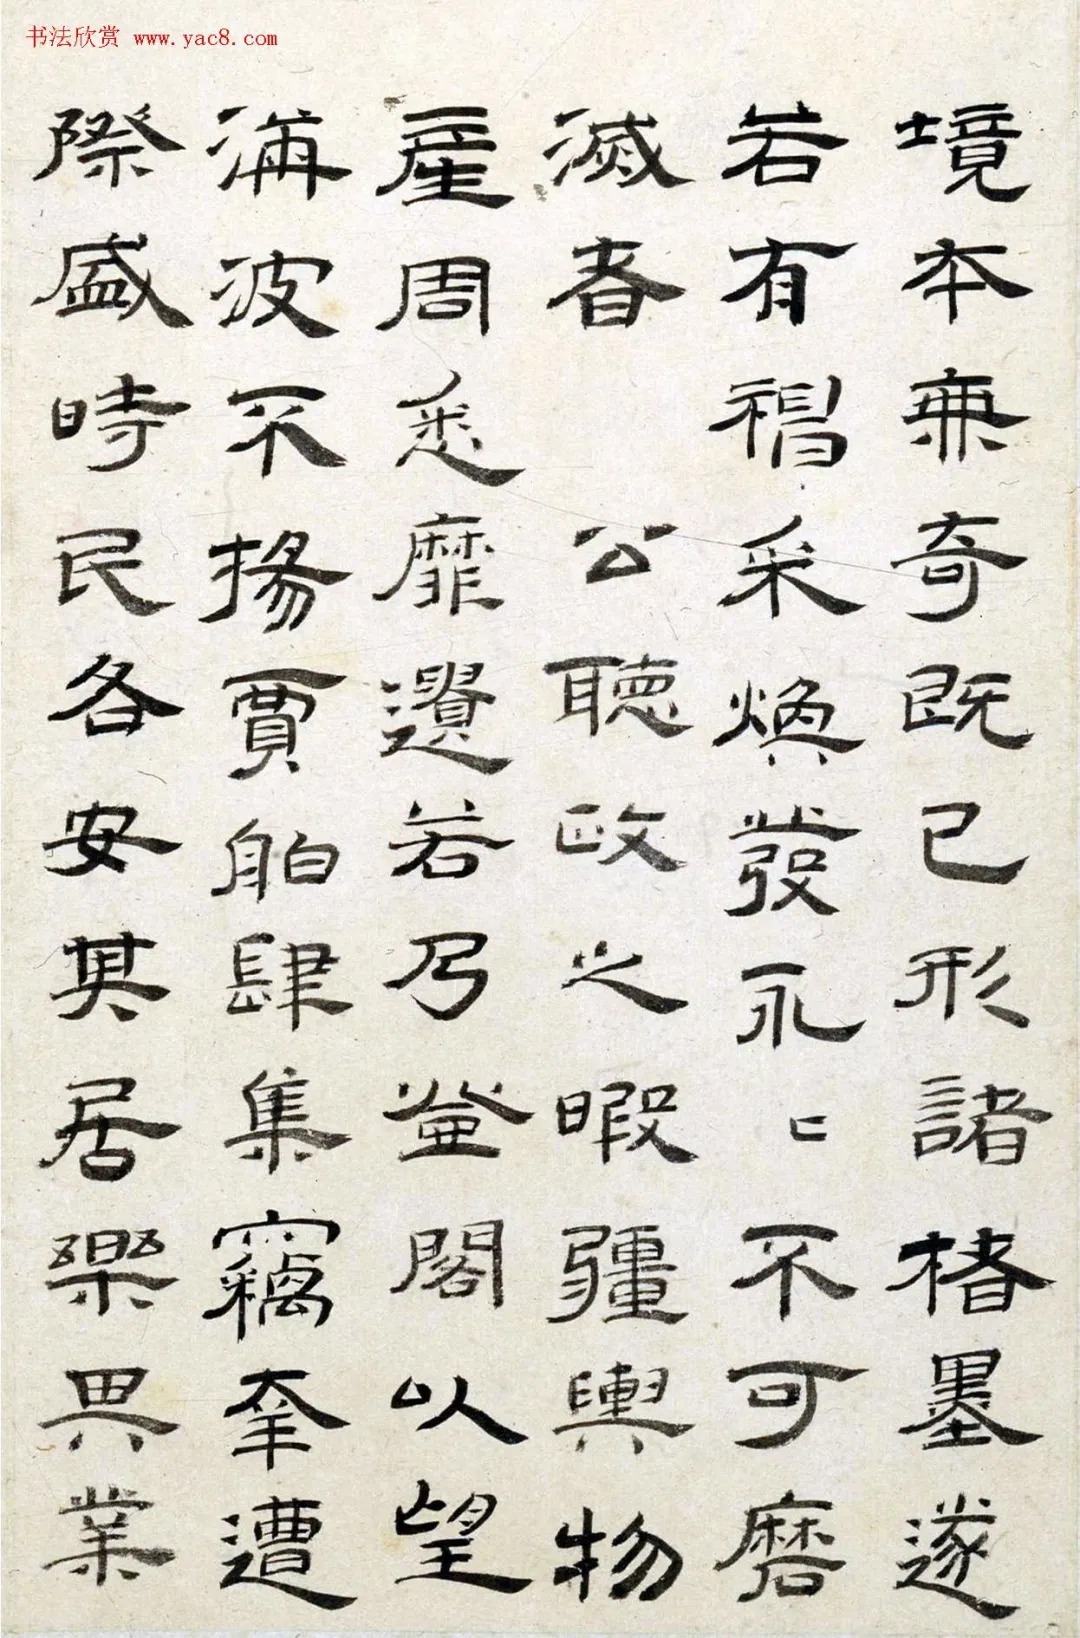 书法欣赏 www.yac8.com
境本兼奇既已形諸楮墨遂
若有神采煥發永〻不可磨
滅者 公聽政之暇疆輿物
產周悉靡遺若乃登閣以望
海波不揚賈舶肆集竊幸遭
際盛時民各安其居樂畀業